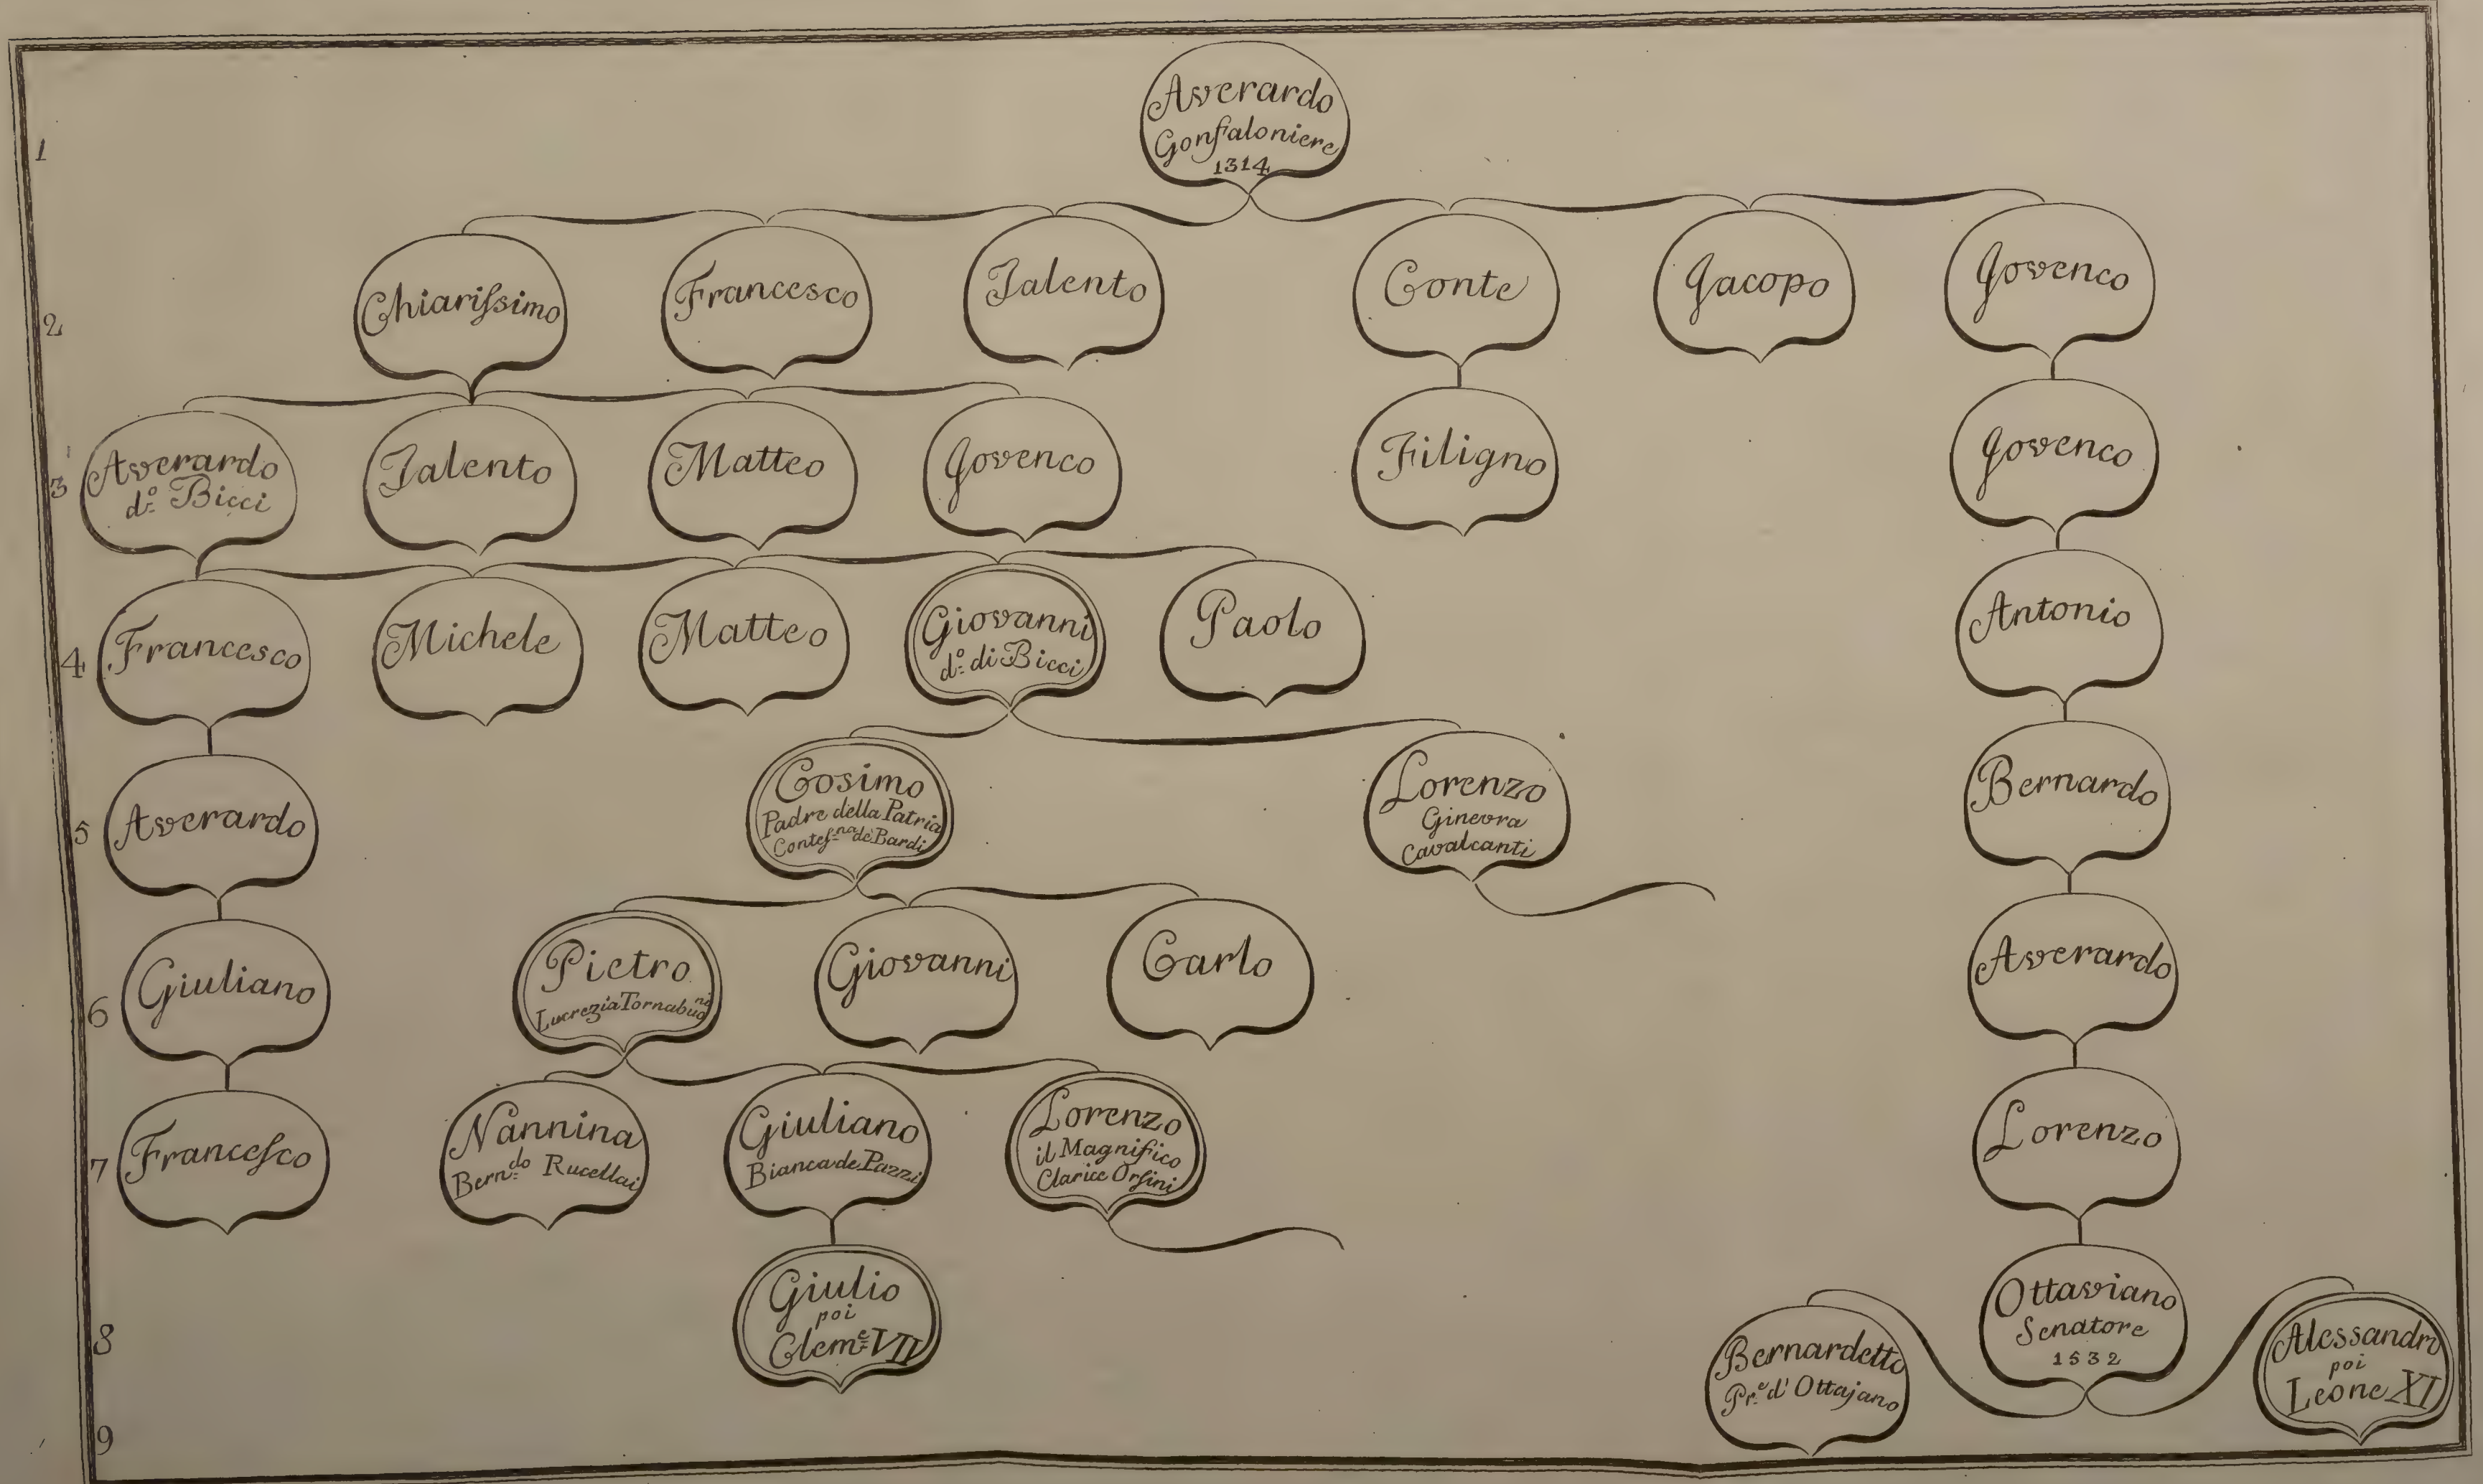 Averardo
Gonfaloniere
1314
1
Chiariſsimo
Francesco
Talento
Conte
Jacopo
Jovenco
2
Averardo
d.º Bicci
Talento
Matteo
Jovenco
Filigno
Jovenco
3
Francesco
Michele
Matteo
Giovanni
d.º di Bicci
Paolo
Antonio
4
Cosimo
Padre della Patria
Conteſ.ⁿᵃ de Bardi
Lorenzo
Ginevra
Cavalcanti
Averardo
Bernardo
5
Pietro
Lucrezia Tornabuoⁿⁱ
Giovanni
Carlo
Giuliano
Averardo
6
Franceſco
Nannina
Bern.ᵈᵒ Rucellai
Giuliano
Bianca de Pazzi
Lorenzo
il Magnifico
Clarice Orſini
Lorenzo
7
Giulio
poi
Clem.ᵉ VII
Ottaviano
Senatore
1532
8
Bernardetto
Pr.ᵉ d' Ottajano
Alessandro
poi
Leone XI
9